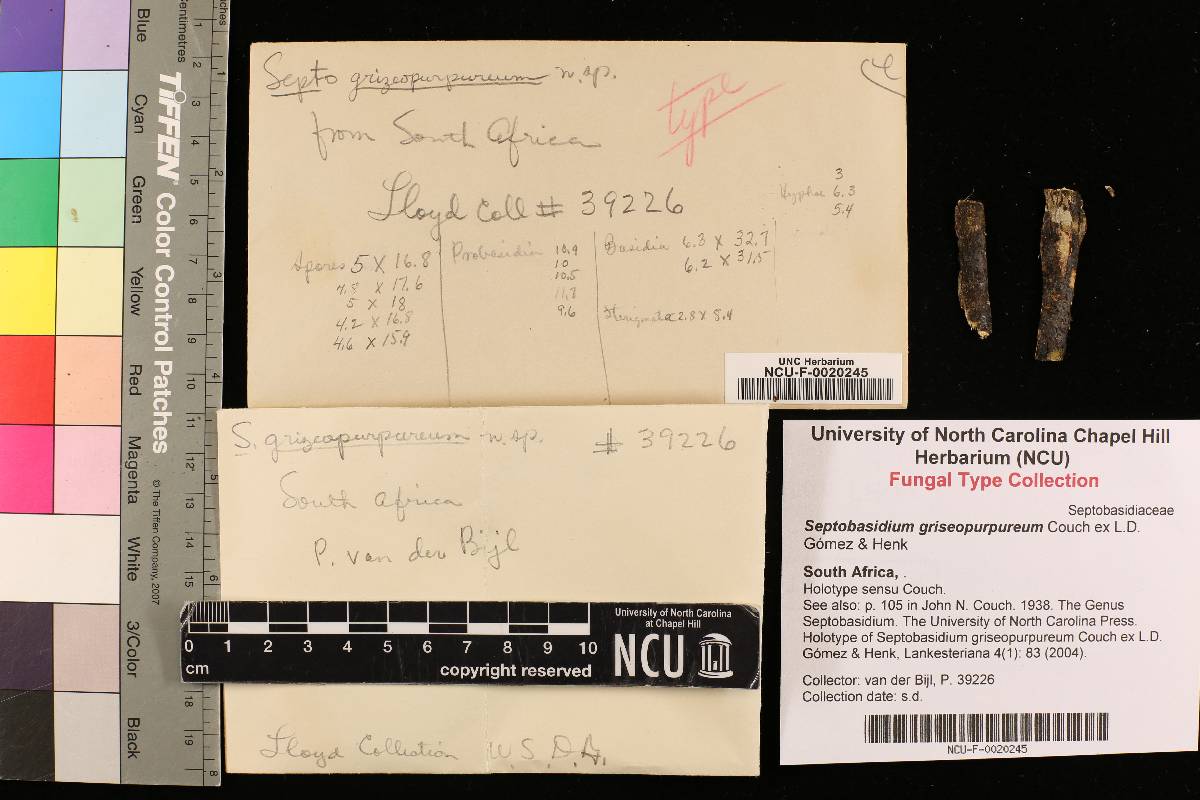 Septo grizeopurpureum n.sp.
type
from South Africa
Lloyd Coll # 39226
Hyphae 3
6.3
5.4
Spores 5 X 16.8
4.8 X 17.6
5 X 18
4.2 X 16.8
4.6 X 15.9
Probasidia 10.9
10
10.5
11.3
9.6
Basidia 6.3 X 32.7
6.2 X 31.5
Sterigmata 2.8 X 8.4
UNC Herbarium
NCU-F-0020245
S. grizeopurpureum n.sp. # 39226
South Africa
P. van der Bijl
Lloyd Collection U.S.D.A.
0 1 2 3 4 5 6 7 8 9 10
cm
copyright reserved
University of North Carolina
at Chapel Hill
NCU
University of North Carolina Chapel Hill
Herbarium (NCU)
Fungal Type Collection
Septobasidiaceae
Septobasidium griseopurpureum Couch ex L.D.
Gómez & Henk
South Africa, .
Holotype sensu Couch.
See also: p. 105 in John N. Couch. 1938. The Genus
Septobasidium. The University of North Carolina Press.
Holotype of Septobasidium griseopurpureum Couch ex L.D.
Gómez & Henk, Lankesteriana 4(1): 83 (2004).
Collector: van der Bijl, P. 39226
Collection date: s.d.
NCU-F-0020245
TIFFEN Color Control Patches
© The Tiffen Company, 2007
Centimetres
Blue
Cyan
Green
Yellow
Red
Magenta
White
3/Color
Black